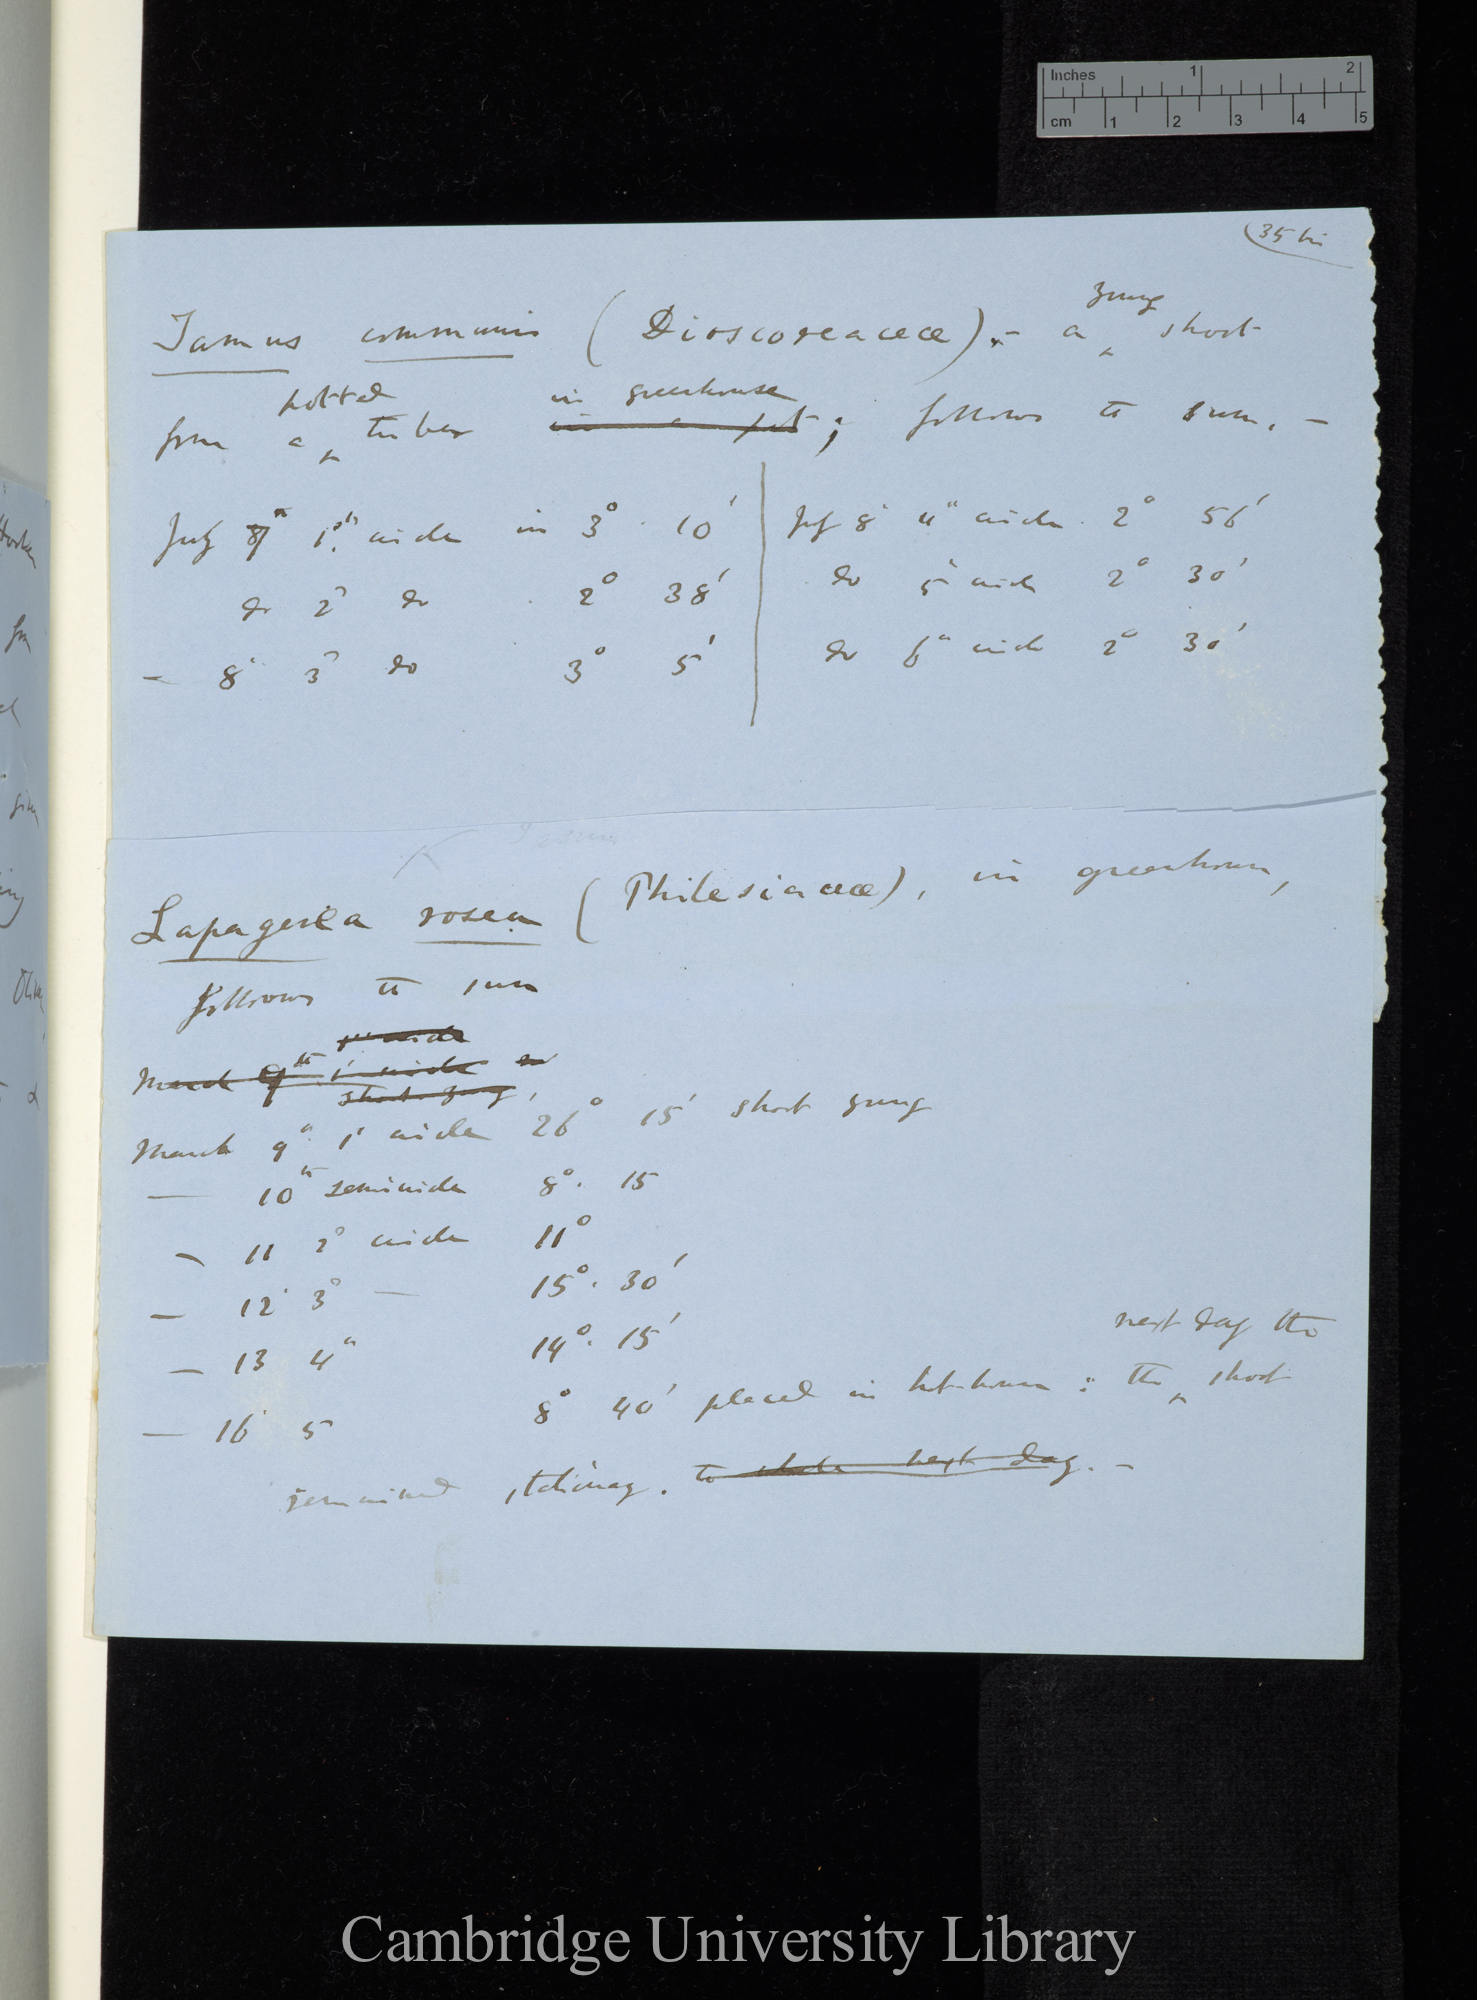 Inches 1 2
cm 1 2 3 4 5
35 bis
young
Tamus communis (Dioscoreaceæ).— a ‸ shoot
potted in greenhouse
from a ‸ tuber in a pot; follows the sun. —
July 7th 1st circle in 3° 10' July 8 4th circle 2° 56'
do 2d do 2° 38' do 5th circle 2° 30'
— 8 3d do 3° 5' do 6th circle 2° 30'
Lapageria rosea (Philesiaceæ), in greenhouse,
follows the sun
March 9th 1st circle
shoot young,
March 9th 1st circle 26° 15' shoot young
— 10th semicircle 8°. 15
— 11 2d circle 11°
— 12 3d — 15°. 30'
— 13 4th 14°. 15'
next day the
— 16 5 8° 40' placed in hot-house: the ‸ shoot
remained stationary. the whole next day. —
Cambridge University Library